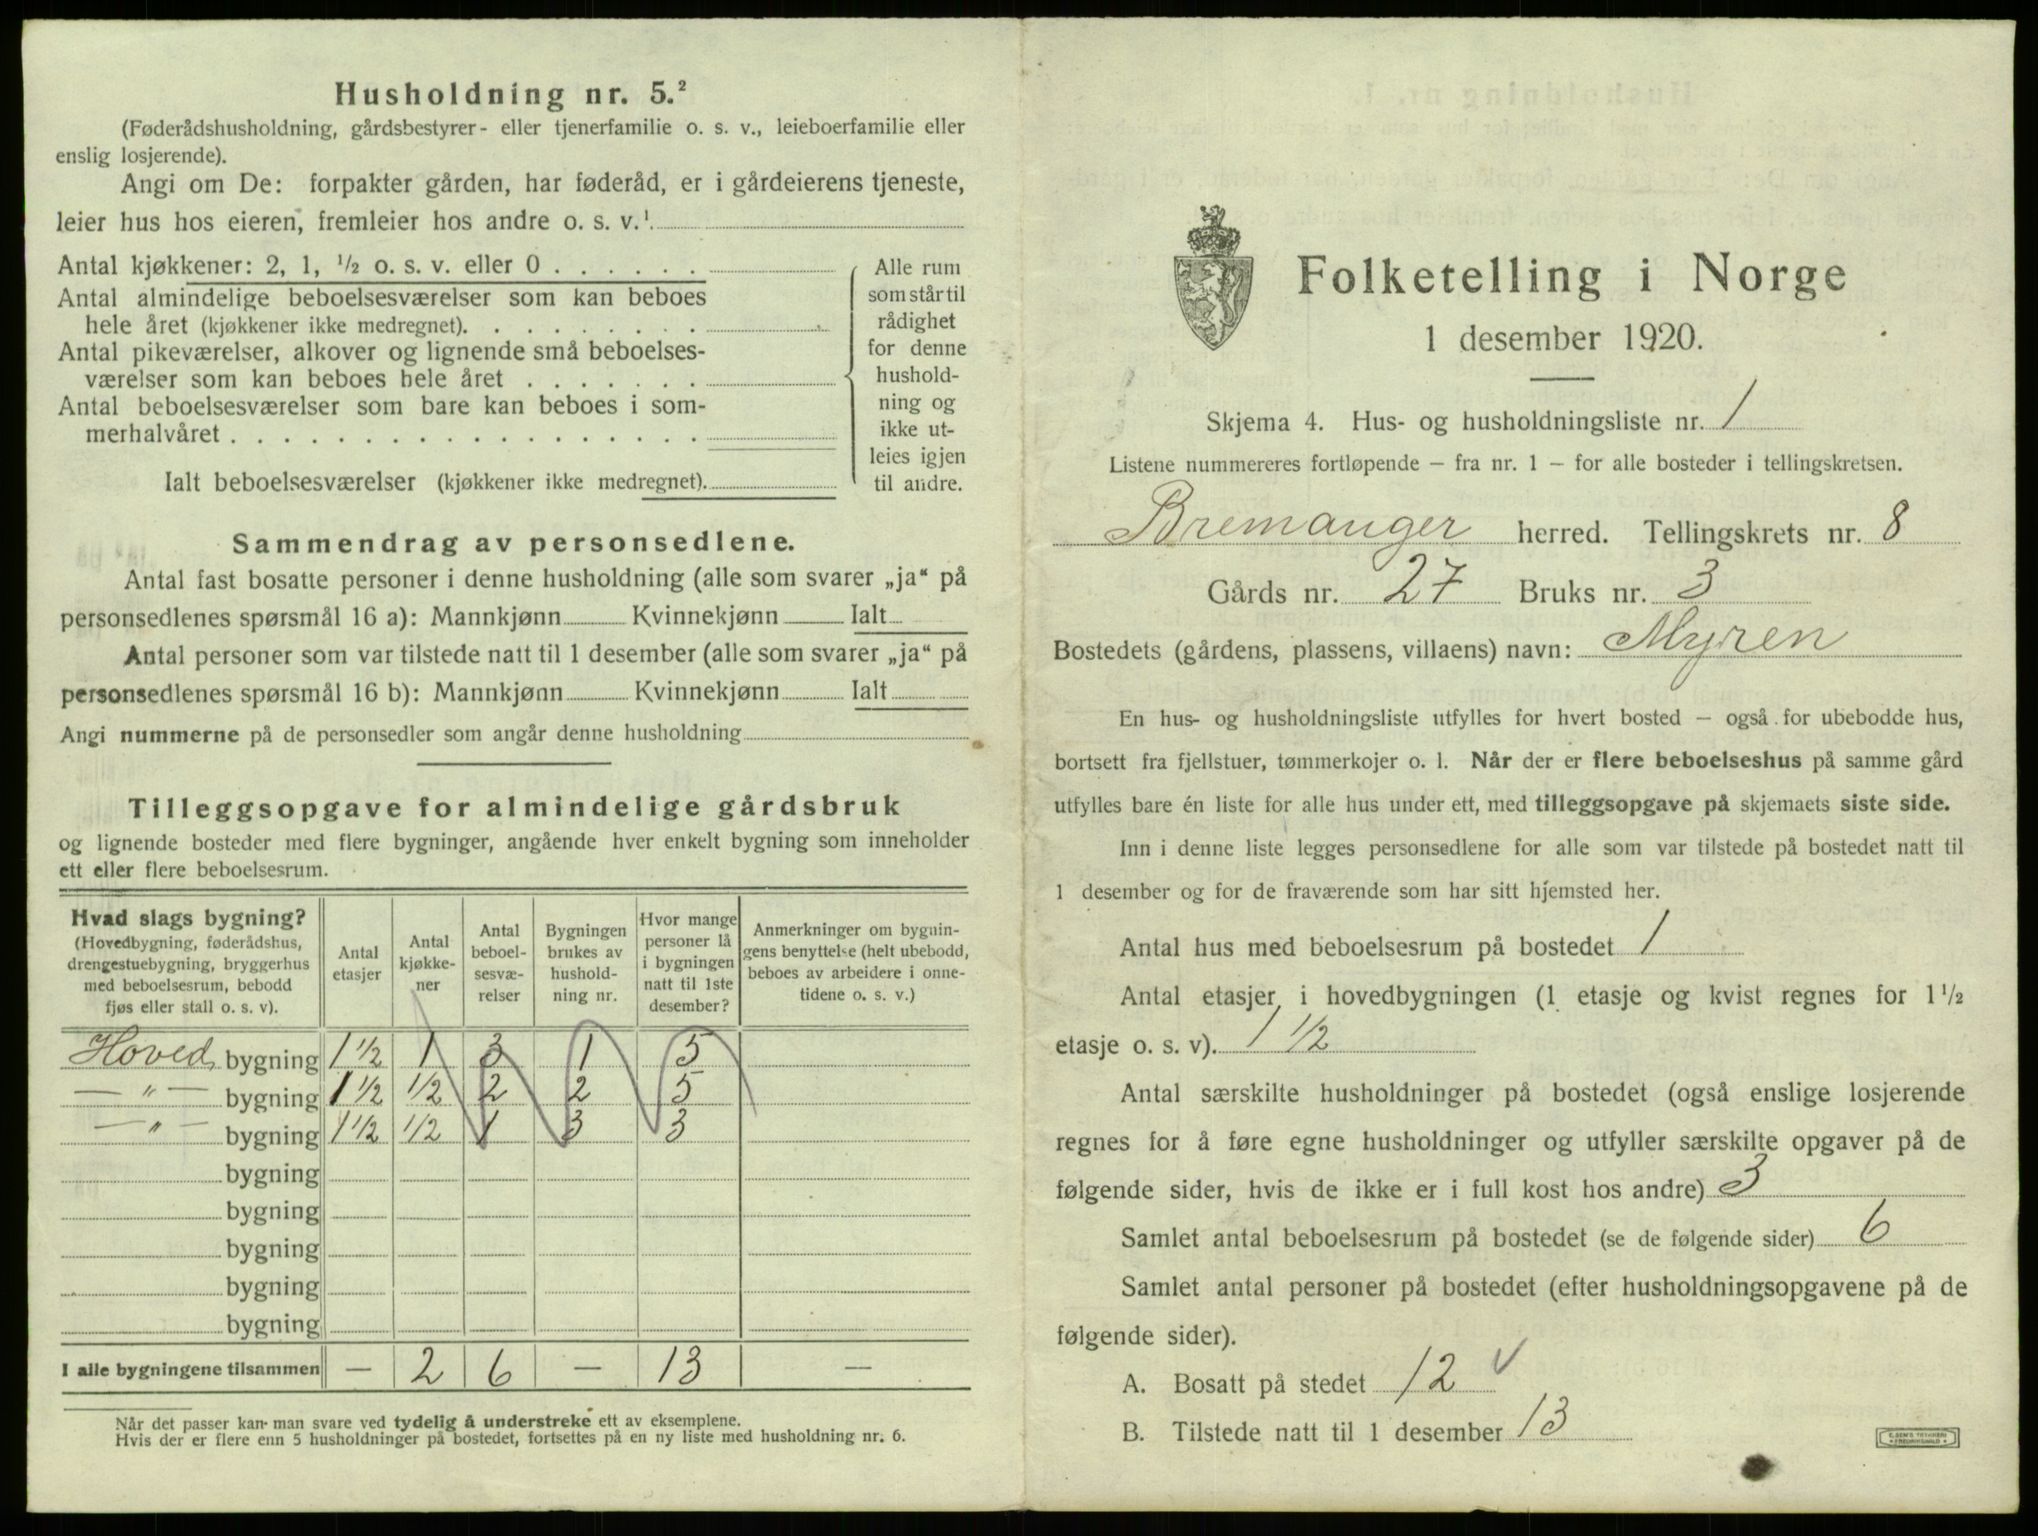 Husholdning nr. 5.²
(Føderådshusholdning, gårdsbestyrer- eller tjenerfamilie o. s. v., leieboerfamilie eller
enslig losjerende).
Angi om De: forpakter gården, har føderåd, er i gårdeierens tjeneste,
leier hus hos eieren, fremleier hos andre o. s. v.¹
Antal kjøkkener: 2, 1, ½ o. s. v. eller 0 . . . . . .
Antal almindelige beboelsesværelser som kan beboes
hele året (kjøkkener ikke medregnet). . . . . . . . .
Antal pikeværelser, alkover og lignende små beboelses-
værelser som kan beboes hele året . . . . . . .
Antal beboelsesværelser som bare kan beboes i som-
merhalvåret . . . . . . . . . . . . . . . . . .
Ialt beboelsesværelser (kjøkkener ikke medregnet).
Alle rum
som står til
rådighet
for denne
hushold-
ning og
ikke ut-
leies igjen
til andre.
Sammendrag av personsedlene.
Antal fast bosatte personer i denne husholdning (alle som svarer „ja“ på
personsedlenes spørsmål 16 a): Mannkjønn Kvinnekjønn Ialt
Antal personer som var tilstede natt til 1 desember (alle som svarer „ja“ på
personsedlenes spørsmål 16 b): Mannkjønn Kvinnekjønn Ialt
Angi nummerne på de personsedler som angår denne husholdning
Tilleggsopgave for almindelige gårdsbruk
og lignende bosteder med flere bygninger, angående hver enkelt bygning som inneholder
ett eller flere beboelsesrum.
Hvad slags bygning?
(Hovedbygning, føderådshus,
drengestuebygning, bryggerhus
med beboelsesrum, bebodd
fjøs eller stall o. s. v).
Antal
etasjer
Antal
kjøkke-
ner
Antal
beboel-
sesvæ-
relser
Bygningen
brukes av
hushold-
ning nr.
Hvor mange
personer lå
i bygningen
natt til 1ste
desember?
Anmerkninger om bygnin-
gens benyttelse (helt ubebodd,
beboes av arbeidere i onne-
tidene o. s. v.)
Hoved bygning 1 ½ 1 3 1 5
— " — bygning 1 ½ ½ 2 2 5
— " — bygning 1 ½ ½ 1 3 3
bygning
bygning
bygning
bygning
bygning
I alle bygningene tilsammen — 2 6 — 13 —
Når det passer kan man svare ved tydelig å understreke ett av eksemplene.
Hvis der er flere enn 5 husholdninger på bostedet, fortsettes på en ny liste med husholdning nr. 6.
Folketelling i Norge
1 desember 1920.
Skjema 4. Hus- og husholdningsliste nr. 1
Listene nummereres fortløpende – fra nr. 1 – for alle bosteder i tellingskretsen.
Bremanger herred. Tellingskrets nr. 8
Gårds nr. 27 Bruks nr. 3
Bostedets (gårdens, plassens, villaens) navn: Myren
En hus- og husholdningsliste utfylles for hvert bosted – også for ubebodde hus,
bortsett fra fjellstuer, tømmerkojer o. l. Når der er flere beboelseshus på samme gård
utfylles bare én liste for alle hus under ett, med tilleggsopgave på skjemaets siste side.
Inn i denne liste legges personsedlene for alle som var tilstede på bostedet natt til
1 desember og for de fraværende som har sitt hjemsted her.
Antal hus med beboelsesrum på bostedet 1
Antal etasjer i hovedbygningen (1 etasje og kvist regnes for 1½
etasje o. s. v). 1 ½
Antal særskilte husholdninger på bostedet (også enslige losjerende
regnes for å føre egne husholdninger og utfyller særskilte opgaver på de
følgende sider, hvis de ikke er i full kost hos andre) 3
Samlet antal beboelsesrum på bostedet (se de følgende sider) 6
Samlet antal personer på bostedet (efter husholdningsopgavene på de
følgende sider).
A. Bosatt på stedet 12 ✓
B. Tilstede natt til 1 desember 13